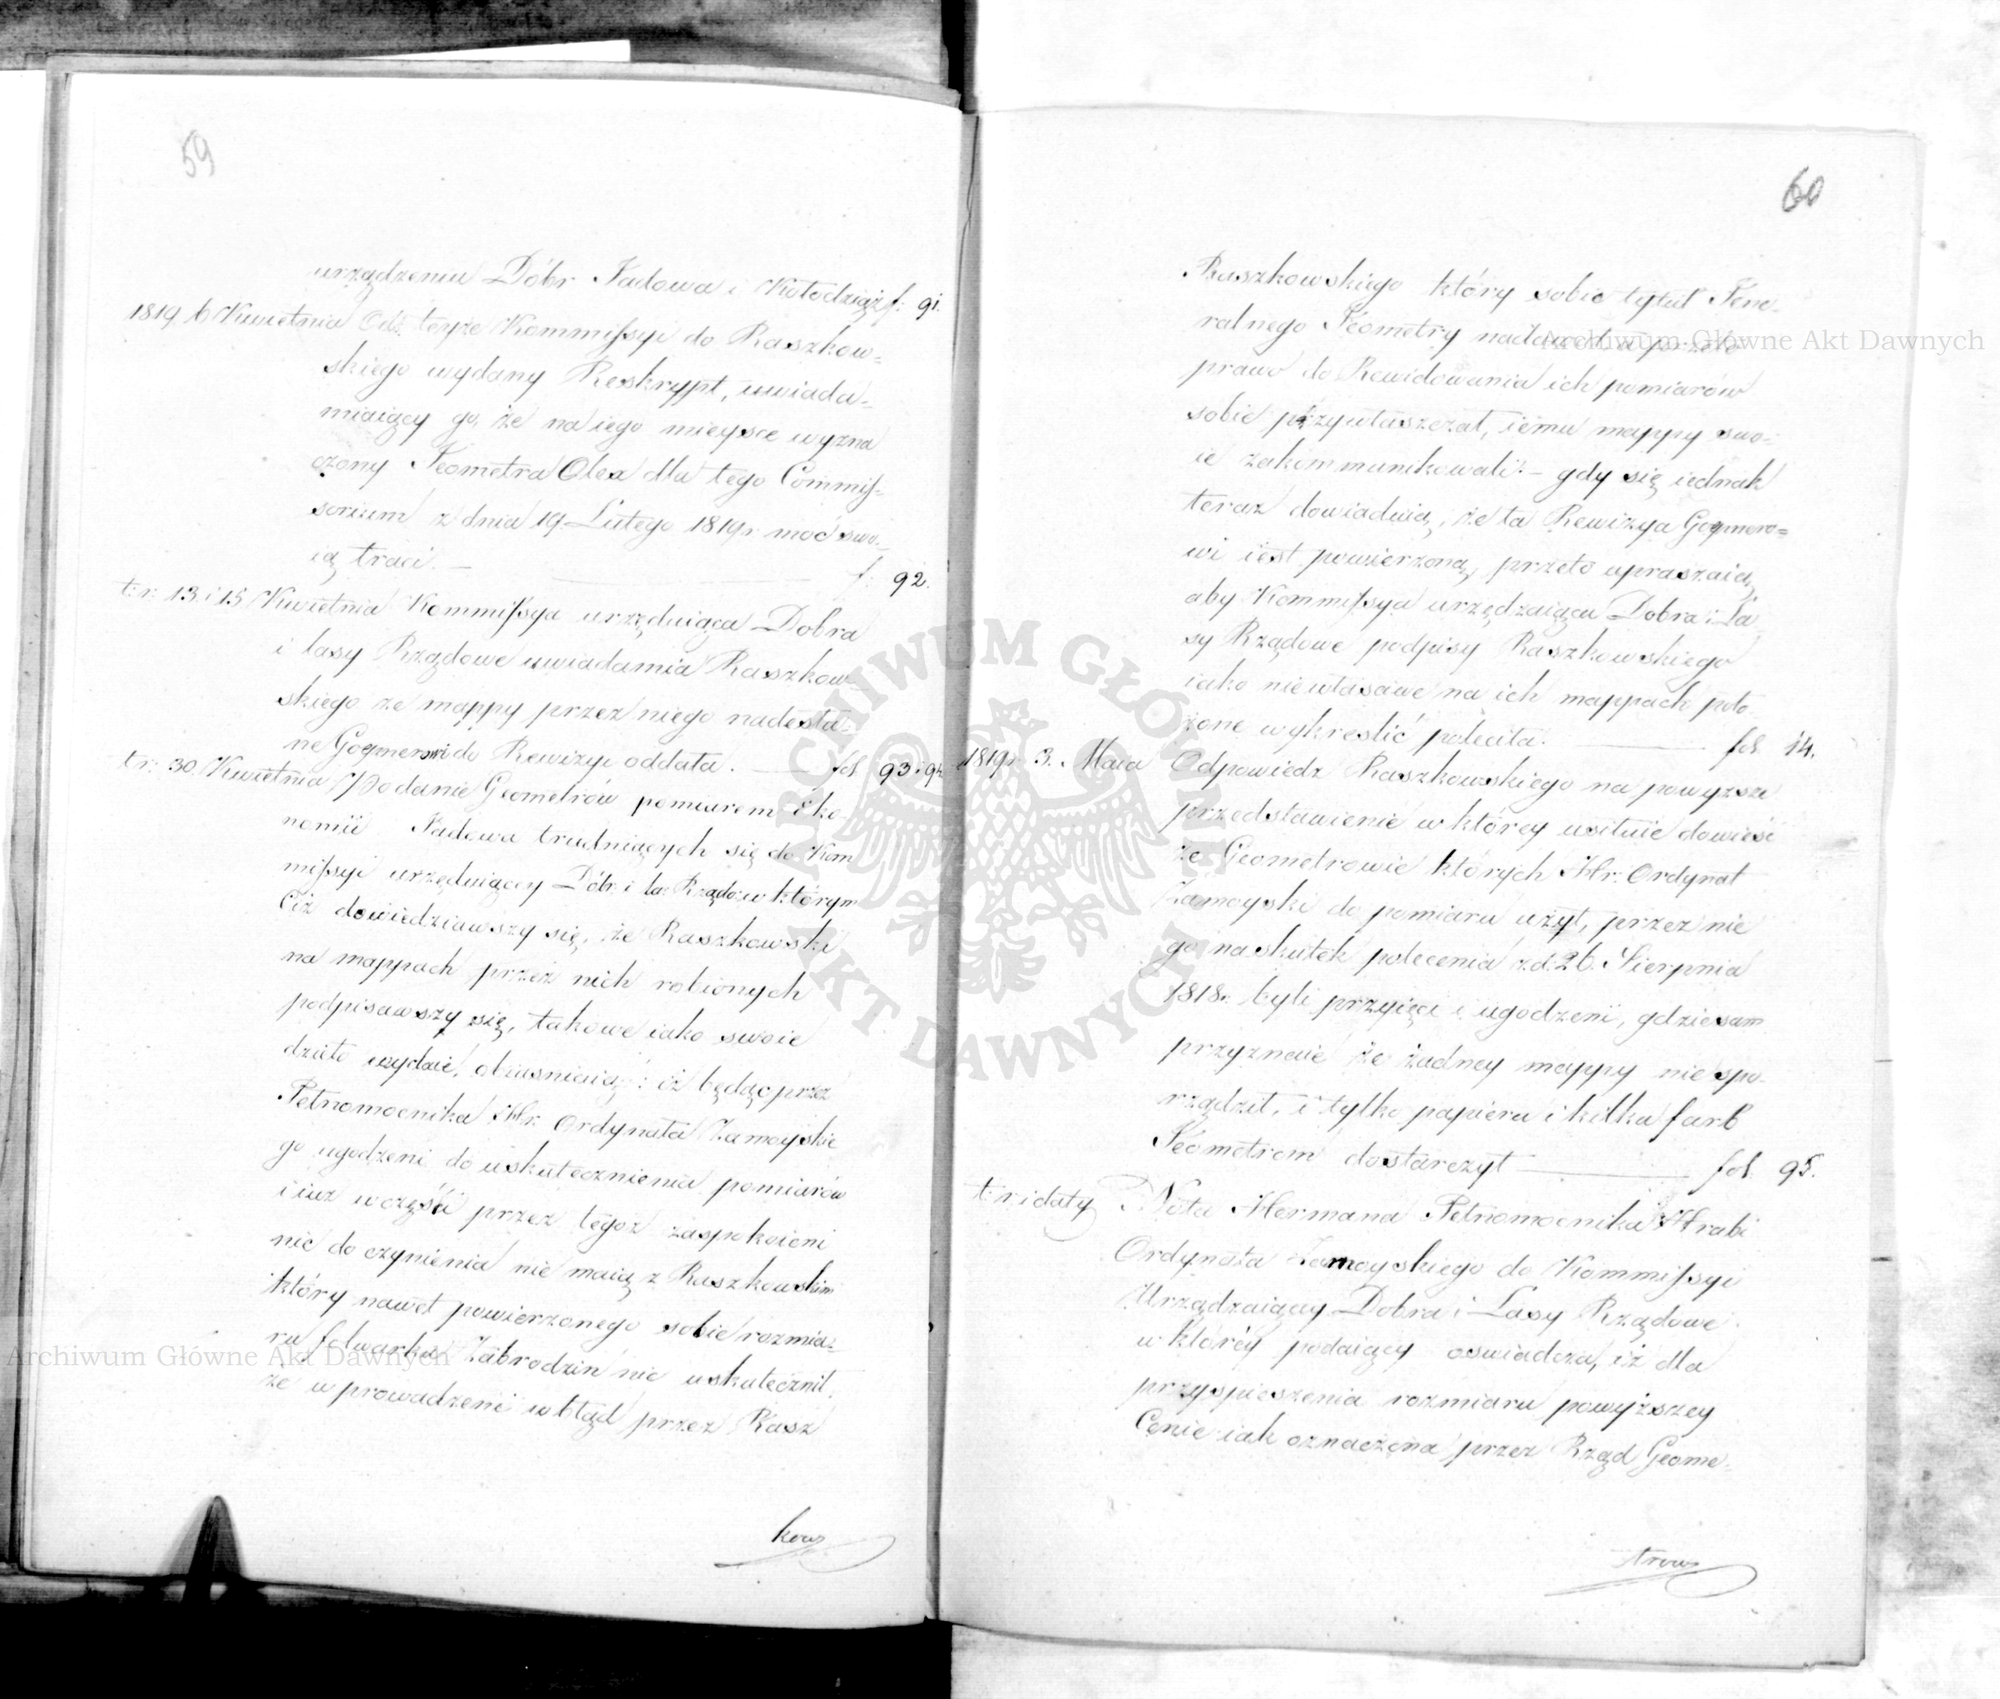 59
urządzeniu Dóbr Jadowa i Kołodziąż f: 91.
1819. 6 Kwietnia Od teyże Kommissyi do Raszkow=
skiego wydany Reskrypt, uwiada=
miaiący go, że na iego mieysce wyzna
czony Jeometra Olex dla tego Commis=
sorium z dnia 19 Lutego 1819r. moc swo=
ią traci. — f: 92.
t: r: 13. i 15 Kwietnia Kommissya urządzaiąca Dobra
i lasy Rządowe uwiadamia Raszkow=
skiego że mappy przez niego nadesła=
ne do Rewizyi oddała. — fol 93 i 94
t: r: 30. Kwietnia Podanie Geometrów pomiarem Eko=
nomii Jadowa trudniących się do Kom
missyi urządzaiącey Dóbr i Las: Rządow: w którym
Ciż dowiedziawszy się, że Raszkowski
na mappach przez nich robionych
podpisawszy się, takowe iako swoie
dzieło wydaie, obiasniaią: iż będąc przez
Pełnomocnika Hr: Ordynata Zamoyskie
go ugodzeni do uskutecznienia pomiarów
i iuż w części przez tegoż zaspokoieni
nic do czynienia nie maią z Raszkowskim
który nawet powierzonego sobie rozmia=
ru folwarku Zabrodzin nie uskutecznił,
że w prowadzeni w błąd przez Rasz
kows
60
Raszkowskiego który sobie tytuł Jene=
ralnego Jeometry nadawał a przeto
prawo do Rewidowania ich pomiarów
sobie przywłaszczał, iemu mappy swo=
ie zakommunikowali. — gdy się iednak
teraz dowiaduią, że ta Rewizya
wi iest powierzoną, przeto upraszaią,
aby Kommissya urządzaiąca Dobra i La
sy Rządowe podpisy Raszkowskiego
iako niewłaściwe na ich mappach poło
żone wykreślić poleciła. — fol. 14.
1819r. 3. Maia Odpowiedz Raszkowskiego na powyższe
przedstawienie w którey usiłuie dowieść
że Geometrowie których Hr. Ordynat
Zamoyski do pomiaru użył, przez nie
go na skutek polecenia z d. 26. Sierpnia
1818r. byli przyięci i ugodzeni, gdzie sam
przyznaie że żadney mappy nie spo=
rządził, i tylko papieru i kilka farb
Jeometrom dostarczył — fol. 95.
t: r i daty Nota Hermana Pełnomocnika Hrabi
Ordynata Zamoyskiego do Kommissyi
Urządzaiącey Dobra i Lasy Rządowe
w którey podaiący oswiadcza, iż dla
przyspieszenia rozmiaru powyższey
Cenie iak oznaczona przez Rząd Geome=
trows
Archiwum Główne Akt Dawnych
Archiwum Główne Akt Dawnych
ARCHIWUM GŁÓWNE AKT DAWNYCH